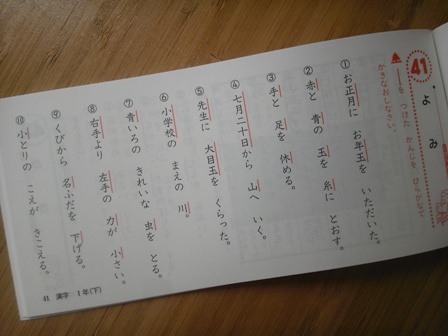 41 よみ
――を つけた かんじを ひらがなで かきなおしなさい。
① お正月に お年玉を いただいた。
② 赤と 青の 玉を 糸に とおす。
③ 手と 足を 休める。
④ 七月二十日から 山へ いく。
⑤ 先生に 大目玉を くらった。
⑥ 小学校の まえの 川。
⑦ 青いろの きれいな 虫を とる。
⑧ 右手より 左手の 力が 小さい。
⑨ くびから 名ふだを 下げる。
⑩ 小とりの こえが きこえる。
41 漢字 1年(下)